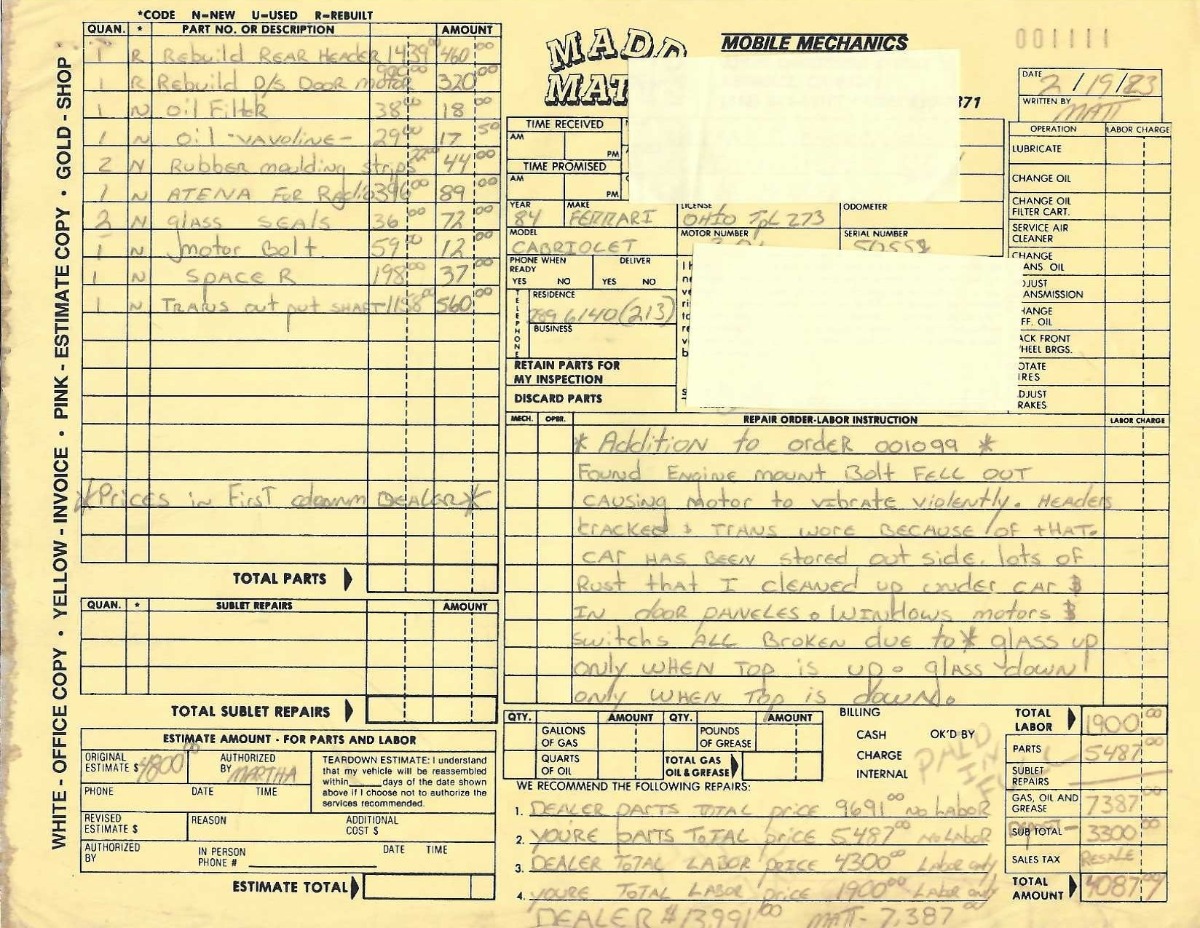 *CODE N=NEW U=USED R=REBUILT
QUAN. * PART NO. OR DESCRIPTION AMOUNT
1 R Rebuild REAR HEADER 1439 00 460 00
1 R Rebuild D/S Door motor 320 00
1 N oil Filter 38 00 18 00
1 N oil -VAVOLINE- 29 00 17 50
2 N Rubber moulding strips 22 00 44 00
1 N ATENA FOR Radio 396 00 89 00
2 N glass SEALS 36 00 72 00
1 N motor Bolt 59 00 12 00
1 N SPACER 198 00 37 00
1 N TRANS out put SHAFT 560 00
*Prices in First DEALER*
TOTAL PARTS
QUAN. * SUBLET REPAIRS AMOUNT
TOTAL SUBLET REPAIRS
ESTIMATE AMOUNT - FOR PARTS AND LABOR
ORIGINAL ESTIMATE $ 4800 00 AUTHORIZED BY MARTHA
PHONE DATE TIME
TEARDOWN ESTIMATE: I understand
that my vehicle will be reassembled
within ____ days of the date shown
above if I choose not to authorize the
services recommended.
REVISED ESTIMATE $ REASON ADDITIONAL COST $
AUTHORIZED BY IN PERSON PHONE # DATE TIME
ESTIMATE TOTAL
WHITE - OFFICE COPY • YELLOW - INVOICE • PINK - ESTIMATE COPY • GOLD - SHOP
MADD
MAT
MOBILE MECHANICS
371
001111
DATE 2/19/23
WRITTEN BY MATT
TIME RECEIVED
AM PM
TIME PROMISED
AM PM
YEAR 84 MAKE FERRARI LICENSE OHIO TPL 273 ODOMETER
MODEL CABRIOLET MOTOR NUMBER SERIAL NUMBER
PHONE WHEN READY YES NO DELIVER YES NO
TELEPHONE
RESIDENCE
289 6140 (213)
BUSINESS
RETAIN PARTS FOR
MY INSPECTION
DISCARD PARTS
OPERATION LABOR CHARGE
LUBRICATE
CHANGE OIL
CHANGE OIL
FILTER CART.
SERVICE AIR
CLEANER
CHANGE
ANS. OIL
DJUST
ANSMISSION
HANGE
FF. OIL
ACK FRONT
HEEL BRGS.
OTATE
IRES
DJUST
RAKES
MECH. OPER. REPAIR ORDER-LABOR INSTRUCTION LABOR CHARGE
* Addition to order 001099 *
Found Engine mount Bolt FELL OUT
CAUSING motor to vibrate violently. HEADERS
CRACKED & TRANS WORE BECAUSE OF tHAt.
CAR HAS BEEN stored out side. lots of
Rust that I cleaned up under CAR &
IN door PANELES. WINDOWS motors &
switchs ALL Broken due to * glass up
only WHEN TOP is up. glass down
only WHEN Top is down.
QTY. AMOUNT QTY. AMOUNT
GALLONS OF GAS POUNDS OF GREASE
QUARTS OF OIL TOTAL GAS OIL & GREASE
BILLING
CASH OK'D BY
CHARGE
INTERNAL
PAID IN FULL
WE RECOMMEND THE FOLLOWING REPAIRS:
1. DEALER PARTS TOTAL price 9691 00 no LABOR
2. YOURE PARTS TOTAL price 5487 00 no LABOR
3. DEALER TOTAL LABOR PRICE 4300 00 LABOR only
4. YOURE TOTAL LABOR price 1900 00 LABOR only
DEALER $13,991 00 MATT- 7,387 00
TOTAL LABOR 1900 00
PARTS 5487
SUBLET REPAIRS
GAS, OIL AND GREASE 7387
SUB TOTAL 3300
SALES TAX RESALE
TOTAL AMOUNT 4087